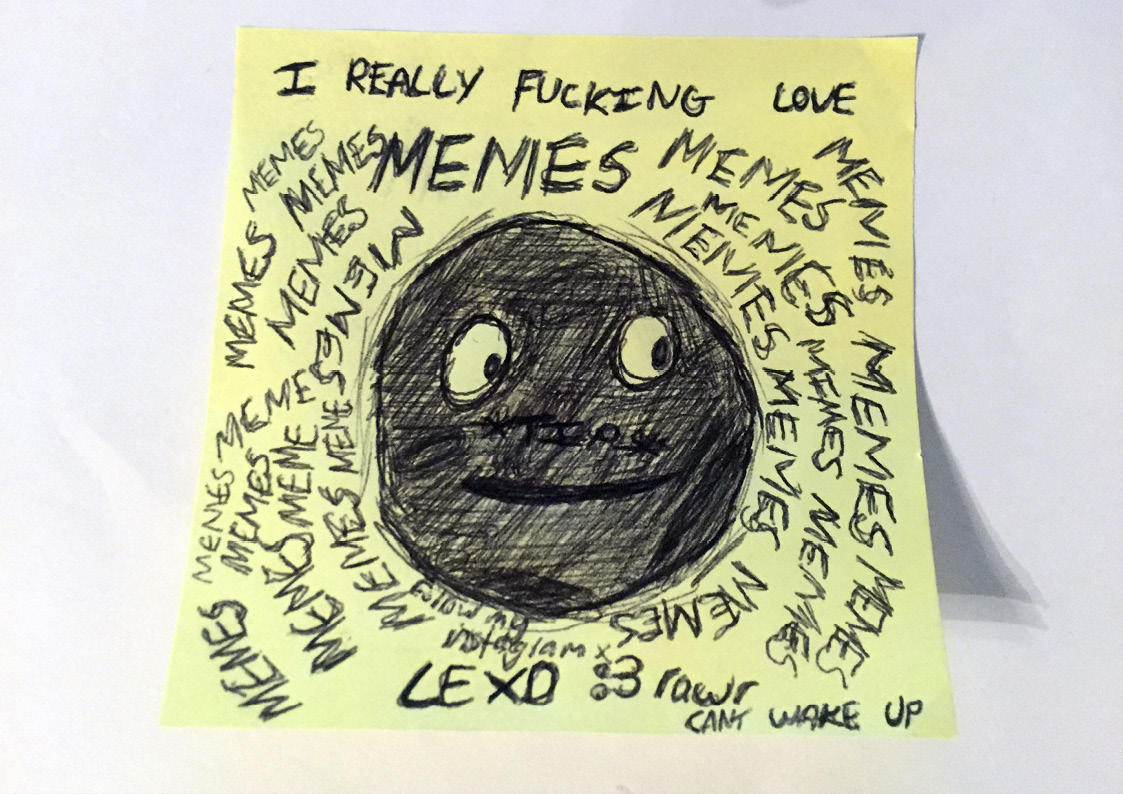 I REALLY FUCKING LOVE
MEMES MEMES MEMES MEMES MEMES
MEMES MEMES MEMES
MEMES MEMES MEMES
MEMES MEMES MEMES
MEMES MEMES MEMES MEMES
*TIPS*
MEMES MEMES MEMES MEMES
MEMES MEMES MEMES MEMES
MEMES MEMES MEMES MEMES
MEMES MEMES MEMES
follow my
instagram x
LEXD :3 rawr
CANT WAKE UP